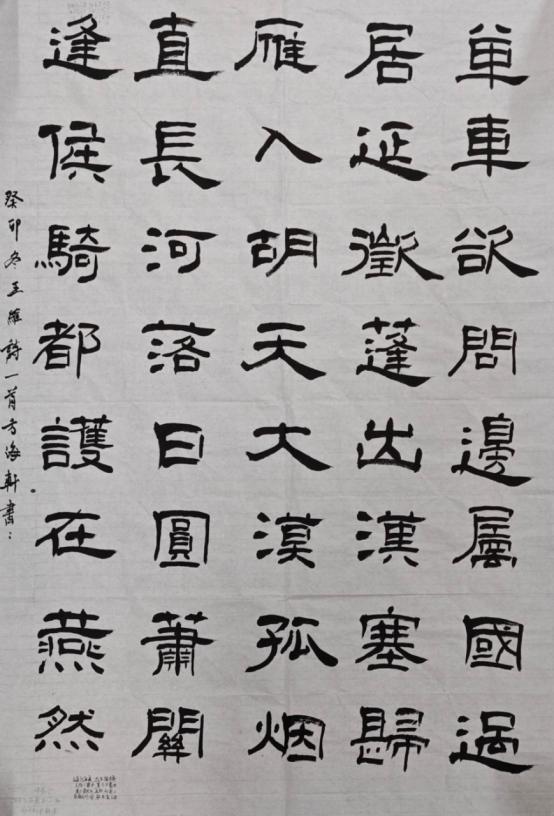 單車欲問邊屬國過
居延徵蓬出漢塞歸
雁入胡天大漠孤烟
直長河落日圓蕭關
逢侯騎都護在燕然
癸卯冬王維詩一首方海軒書